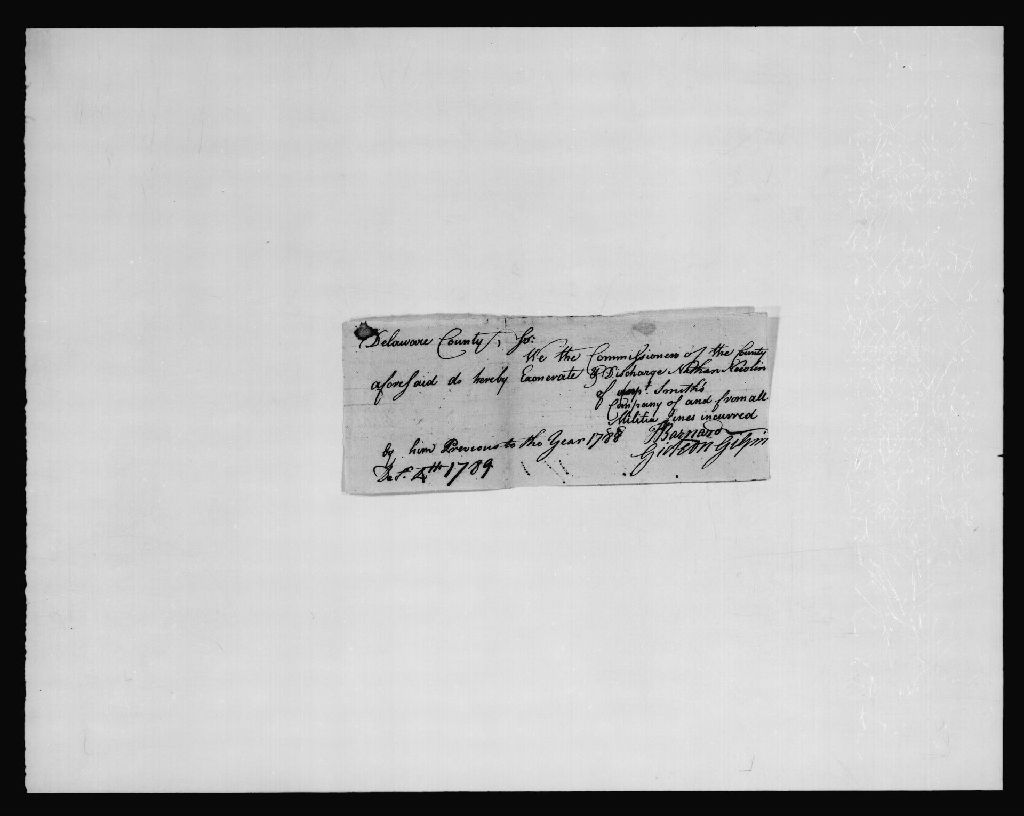 Delaware County, Ss:
We the Commissioners of the County
aforesaid do hereby Exonerate & Discharge Nathan Newlin
of Capt. Smith's
Company of and from all
Militia fines incurred
by him Previous to the Year 1788
Decr. 4th 1789
J Barnard
Gideon Gilpin